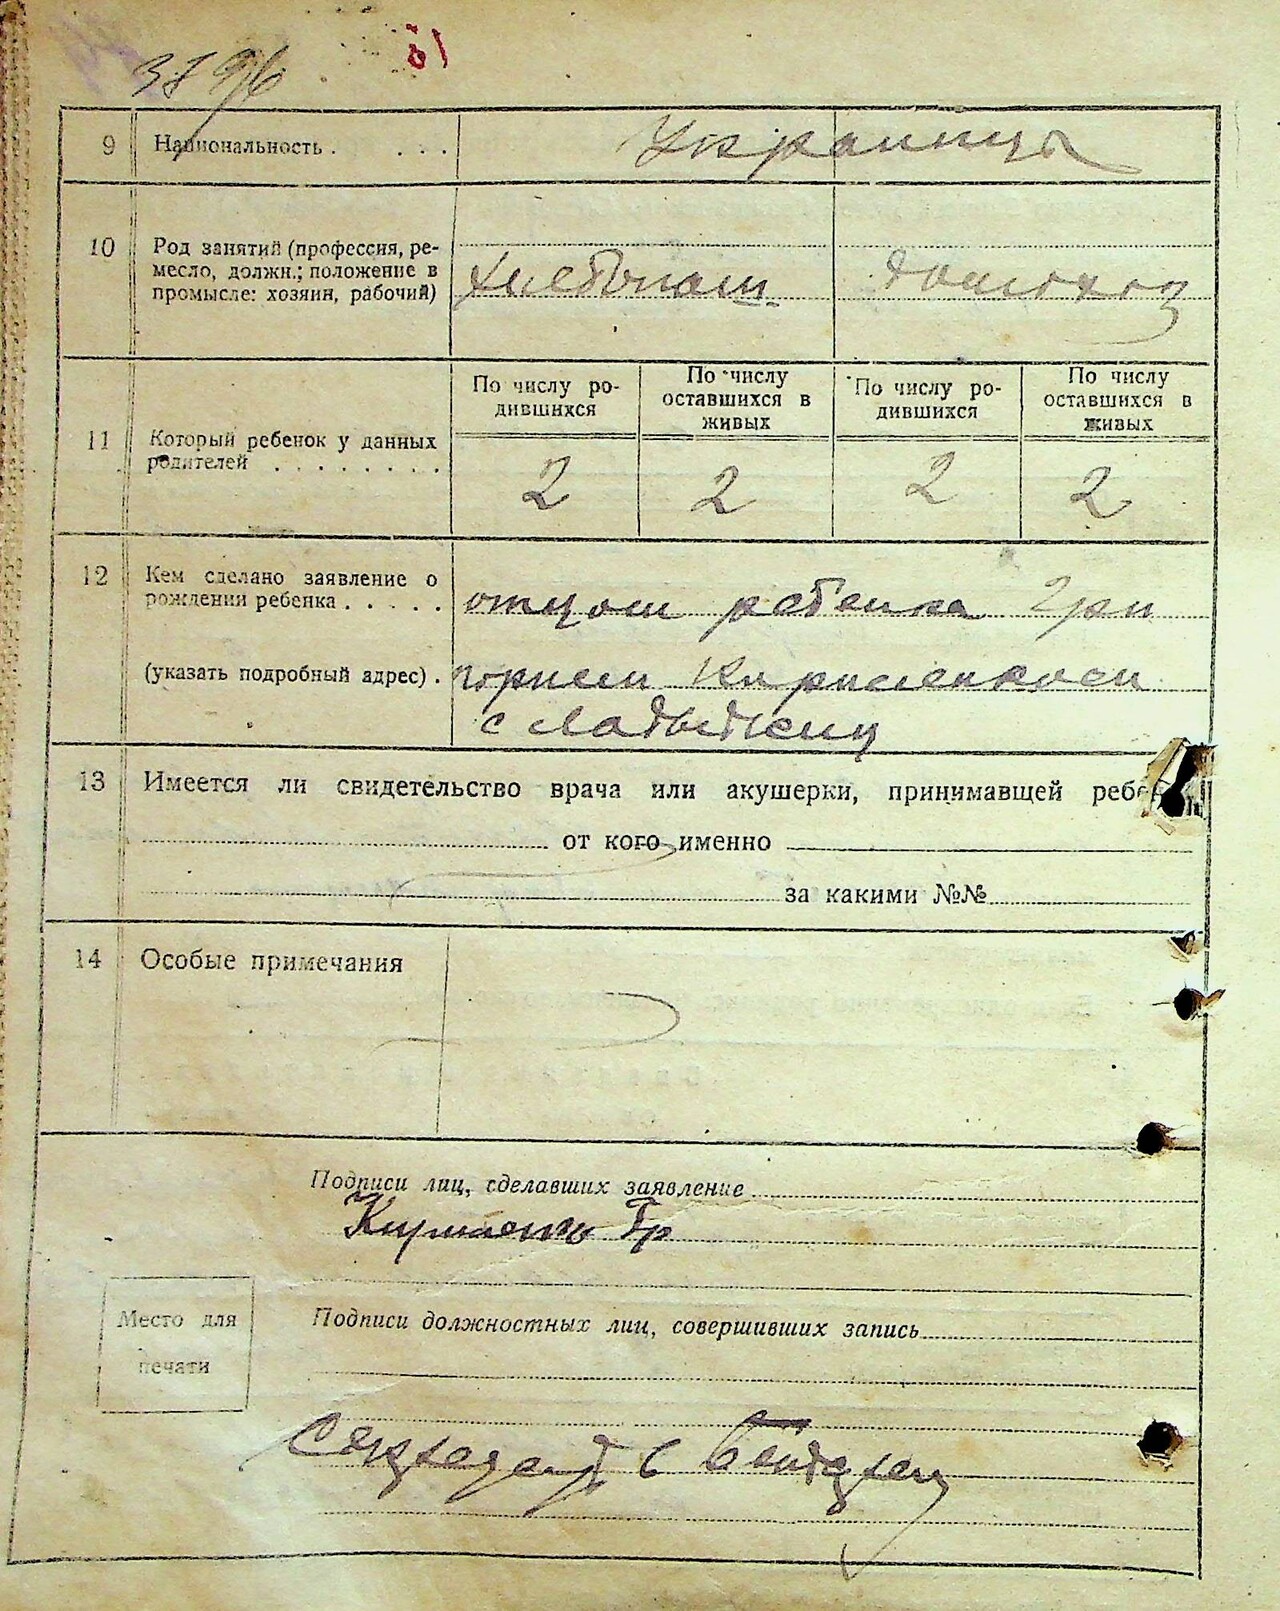 3796
9 Национальность . . . . Украинцы
10 Род занятий (профессия, ре-
месло, должн.; положение в
промысле: хозяин, рабочий)
хлебопаш. домохоз
По числу ро-
дившихся
По числу
оставшихся в
живых
По числу ро-
дившихся
По числу
оставшихся в
живых
11 Который ребенок у данных
родителей . . . . . . . .
2 2 2 2
12 Кем сделано заявление о
рождении ребенка . . . . . отцом ребенка Гри
(указать подробный адрес) . горием Кириленком
с
13 Имеется ли свидетельство врача или акушерки, принимавщей
от кого именно
за какими №№
14 Особые примечания
Подписи лиц, сделавших заявление
Гр
Место для
печати
Подписи должностных лиц, совершивших запись